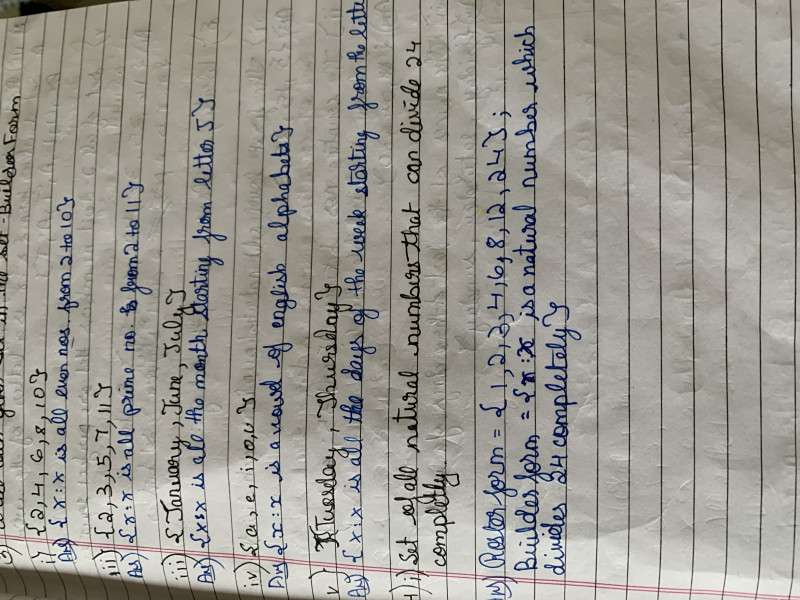 Set-Builder Form
i) {2, 4, 6, 8, 10}
Ans) {x : x is all even nos from 2 to 10}
ii) {2, 3, 5, 7, 11}
Ans) {x : x is all prime no. from 2 to 11}
iii) {January, June, July}
Ans) {x : x is all the month starting from letter J}
iv) {a, e, i, o, u}
Ans {x : x is a vowel of english alphabets}
v) {Tuesday, Thursday}
Ans) {x : x is all the days of the week starting from the
i) Set of all natural numbers that can divide 24
completly
Roster form = {1, 2, 3, 4, 6, 8, 12, 24};
Builder form = {x : x is a natural number which
divides 24 completely}